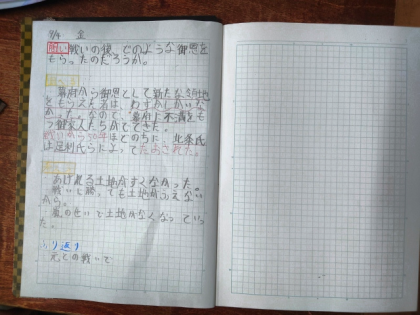 9/4 金
問い 戦いの後、どのような御恩を
もらったのだろうか。
幕府から御恩として新たな領地
をもらえた者は、わずかしかいな
かった。なので、幕府に不満をも
つ御家人たちがでてきた。
戦いから50年ほどのちに、北条氏
は足利氏らによってたおされた。
あげれる土地がすくなかった。
戦いに勝っても土地がふえない
から。
の土地がなくなっていっ
た。
ふり返り
元との戦いで